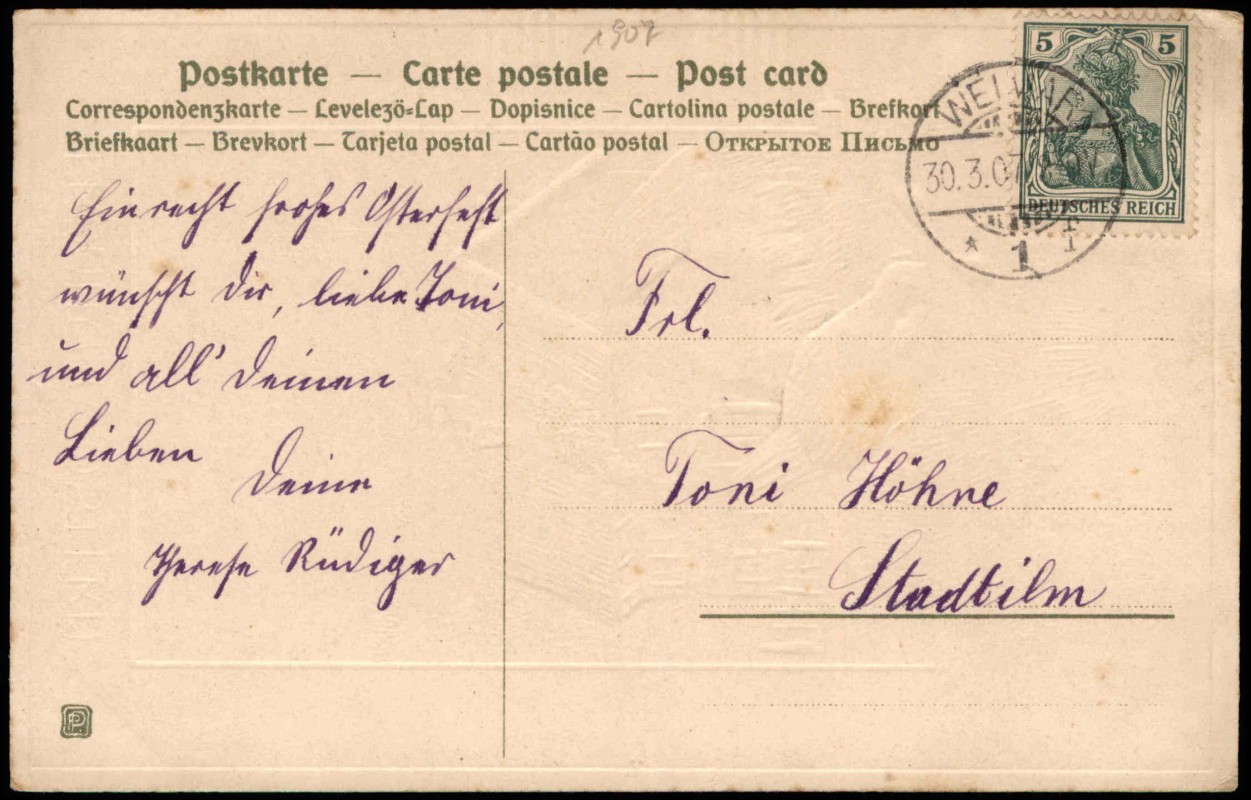 1907
Postkarte — Carte postale — Post card
Correspondenzkarte — Levelező-Lap — Dopisnice — Cartolina postale — Brefkort
Briefkaart — Brevkort — Tarjeta postal — Cartão postal — Открытое Письмо
5 5
DEUTSCHES REICH
WEIMAR
30.3.07
* 1
Ein recht frohes Osterfest
wünscht Dir, liebe Toni,
und all' Deinen
Lieben
Deine
Therese Rüdiger
Frl.
Toni Höhne
Stadtilm